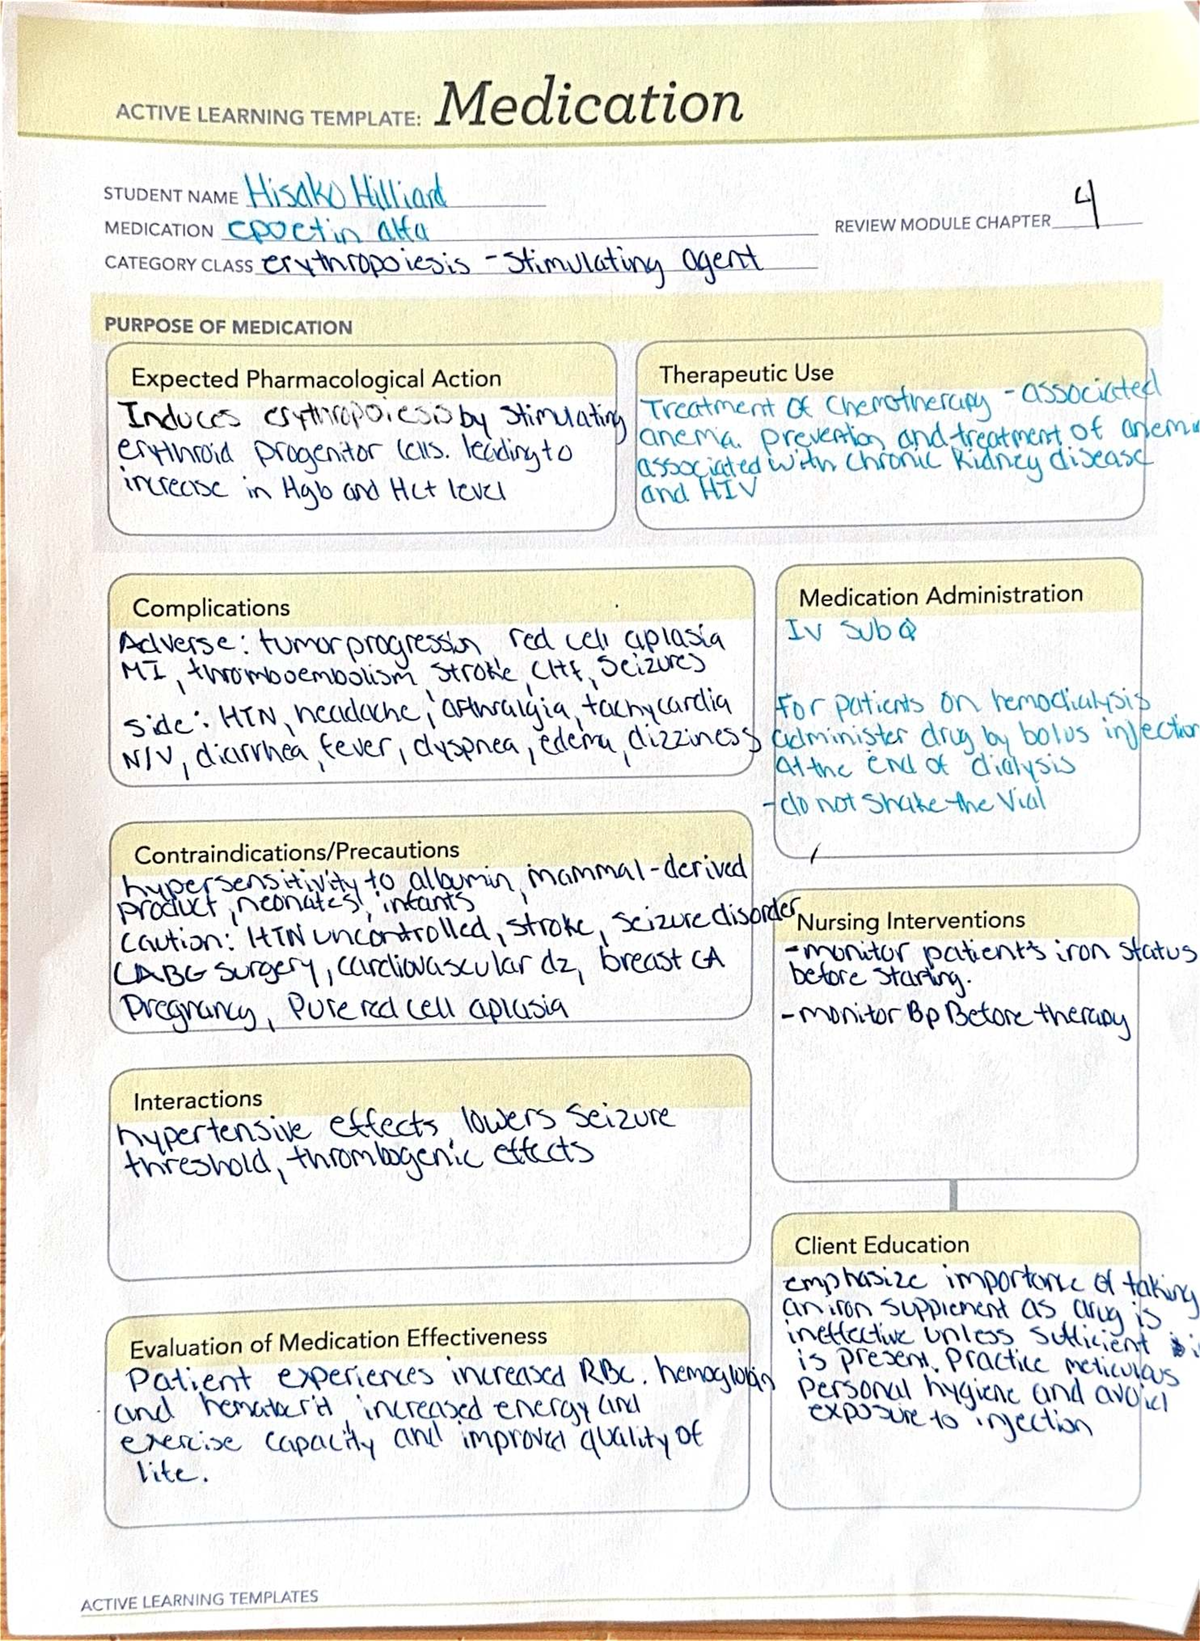 ACTIVE LEARNING TEMPLATE: Medication
STUDENT NAME Hisako Hilliard
MEDICATION epoetin alfa
REVIEW MODULE CHAPTER 4
CATEGORY CLASS erythropoiesis - stimulating agent
PURPOSE OF MEDICATION
Expected Pharmacological Action
Induces erythropoiesis by stimulating
erythroid progenitor cells. leading to
increase in Hgb and Hct level
Therapeutic Use
Treatment of chemotherapy - associated
anemia. prevention and treatment of anemia
associated with chronic kidney disease
and HIV
Complications
Adverse: tumor progression, red cell aplasia
MI, thromboembolism stroke, CHF, seizures
side: HTN, headache, arthralgia, tachycardia
N/V, diarrhea, fever, dyspnea, edema, dizziness
Medication Administration
IV SubQ
for patients on hemodialysis
administer drug by bolus injection
at the end of dialysis
-do not shake the vial
Contraindications/Precautions
hypersensitivity to albumin, mammal-derived
product, neonates, infants
caution: HTN uncontrolled, stroke, seizure disorder
CABG surgery, cardiovascular dz, breast CA
Pregnancy, Pure red cell aplasia
Nursing Interventions
-monitor patient's iron status
before starting.
-monitor Bp Before therapy
Interactions
hypertensive effects lowers seizure
threshold, thrombogenic effects
Client Education
emphasize importance of taking
an iron supplement as drug is
ineffective unless sufficient
is present. practice meticulous
personal hygiene and avoid
exposure to injection
Evaluation of Medication Effectiveness
Patient experiences increased RBC. hemoglobin
and hematocrit, increased energy and
exercise capacity and improved quality of
life.
ACTIVE LEARNING TEMPLATES